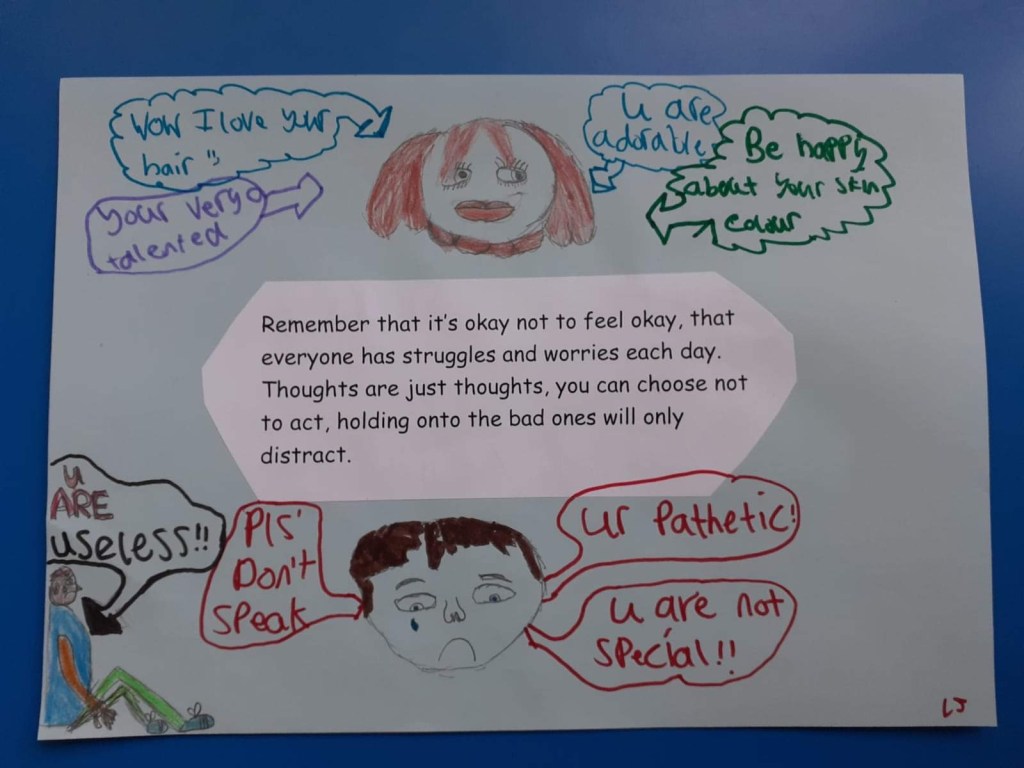 Wow I love your
hair
your very
talented
u are
adorable
Be happy
about your skin
colour
Remember that it's okay not to feel okay, that
everyone has struggles and worries each day.
Thoughts are just thoughts, you can choose not
to act, holding onto the bad ones will only
distract.
u
ARE
useless!!
Pls'
Don't
speak
ur Pathetic!
u are not
special!!
LJ